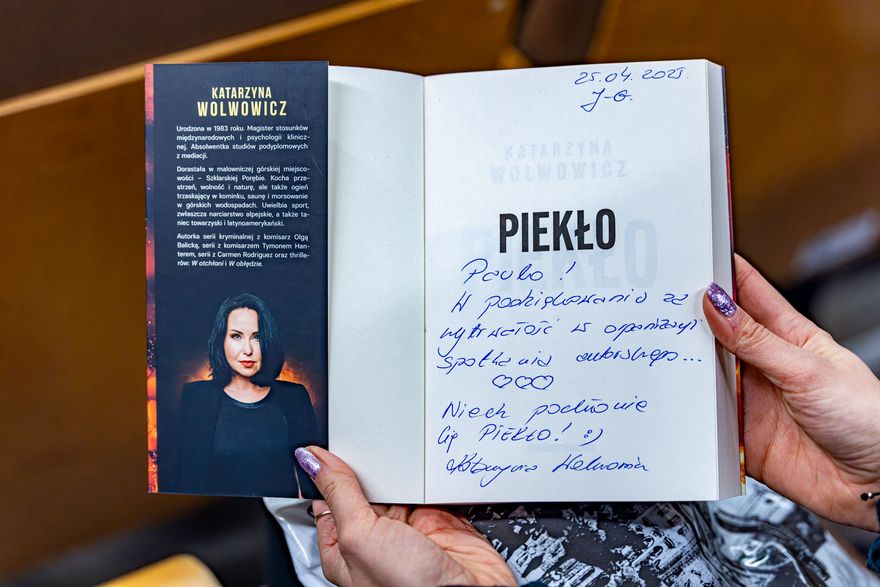 KATARZYNA
WOLWOWICZ
Urodzona w 1983 roku. Magister stosunków
międzynarodowych i psychologii klinicz-
nej. Absolwentka studiów podyplomowych
z mediacji.
Dorastała w malowniczej górskiej miejsco-
wości – Szklarskiej Porębie. Kocha prze-
strzeń, wolność i naturę, ale także ogień
trzaskający w kominku, saunę i morsowanie
w górskich wodospadach. Uwielbia sport,
zwłaszcza narciarstwo alpejskie, a także ta-
niec towarzyski i latynoamerykański.
Autorka serii kryminalnej z komisarz Olgą
Balicką, serii z komisarzem Tymonem Han-
terem, serii z Carmen Rodriguez oraz thrille-
rów: W otchłani i W obłędzie.
25.04.2025.
J-G.
KATARZYNA
WOLWOWICZ
PIEKŁO
Paulo!
W podziękowaniu za
wytrwałość w organizacji
spotkania autorskiego...
Niech pochłonie
Cię PIEKŁO! :)
Katarzyna Wolwowicz